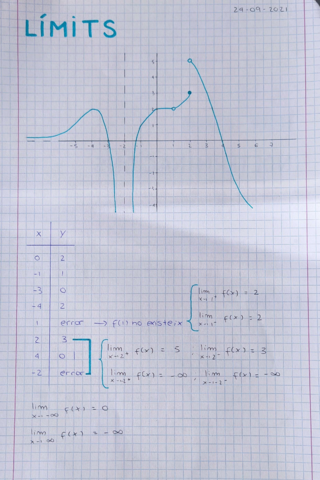 29-09-2021
LÍMITS
5
-5 -4 -3 1 2 3 4 5 6 7
x y
0 2
-1 1
-3 0
-4 2
1 error → f(1) no existeix
lim x→1⁺ f(x) = 2
lim x→1⁻ f(x) = 2
2 3
4 0
-2 error
lim x→2⁺ f(x) = 5 , lim x→2⁻ f(x) = 3
lim x→-2⁺ f(x) = -∞ , lim x→-2⁻ f(x) = -∞
lim x→-∞ f(x) = 0
lim x→∞ f(x) = -∞